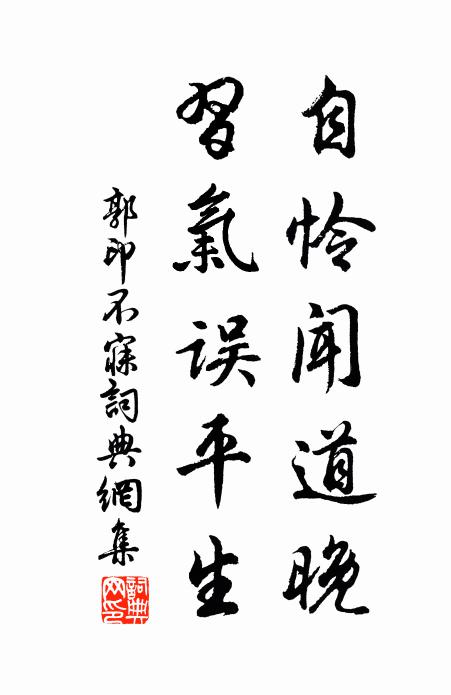 自怜聞道晚
習氣误平生
郭印不寐詞典網集
詞典網印